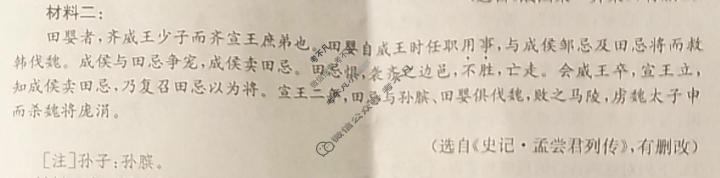 材料二:
田婴者,齐威王少子而齐宣王庶弟也。田婴自威王时任职用事,与成侯邹忌及田忌将而救
韩伐魏。成侯与田忌争宠,成侯卖田忌。田忌惧,袭齐之边邑,不胜,亡走。会威王卒,宣王立,
知成侯卖田忌,乃复召田忌以为将。宣王二年,田忌与孙膑、田婴俱伐魏,败之马陵,虏魏太子申
而杀魏将庞涓。
(选自《史记·孟尝君列传》,有删改)
[注]孙子:孙膑。